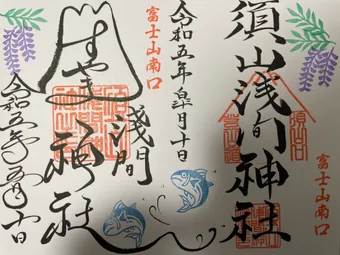 富士山南口
須山浅間神社
令和五年皐月十日
富士山南口
すやま
浅間
神社
令和五年五月十日